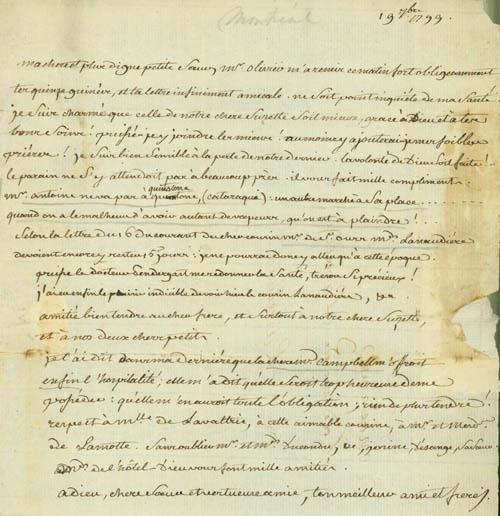 Montréal
19 7bre 1799.
ma chere et plus digne petite Sœur, mr. Olivier m'a remis ce matin fort obligeamment
tes quinze guinées, et ta lettre infiniment amicale. ne sois point inquiète de ma Santé
je suis charmé que celle de notre chere Surette soit mieux, grace a Dieu et a tes
bons soins! puissé-je y joindre les miens! au moins y ajouterai-je mes foibles
prières! je suis bien sensible à la perte de notre dernier. la volonté de Dieu soit faite!
le parain ne s'y attendoit pas a beaucoup près. il vous fait mille compliments.
mr. antoine ne va pas a quinstone, (cataraqui): un autre marche à sa place........
quand on a le malheur d'avoir autant de vapeurs, qu'on est à plaindre!...
Selon la lettre du 16 du courant du cher cousin mr. de St. ours mde. Lanaudière
devoient encore y rester 15 jours: je ne pourrai donc y aller qu'a cette époque.
puisse le docteur me redonner la Santé, trésor si précieux!
j'ai eu enfin le plaisir indicible de voir hier le cousin Lanaudière,
amitié bien tendre au cher frere, et surtout a notre chere Surette,
et à nos deux chers petits.
je t'ai dit dans ma derniére que la chere me. Campbell m'offroit
enfin l'hospitalité; elle m'a dit quelle seroit trop heureuse de me
posseder: qu'elle m'en auroit toute l'obligation; rien de plus tendre!
respect à mlle de Lavaltrie, à cette aimable cousine, a mr. et mesd.
de Lamotte. Sans oublier mr. et mde.
de l'hôtel-Dieu vous font mille amitiés.
adieu, chere Sœur et vertueuse amie, ton meilleur ami et frere J.